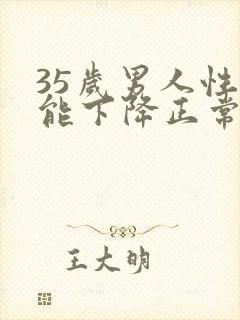 35岁男人性功
能下降正常
王大明